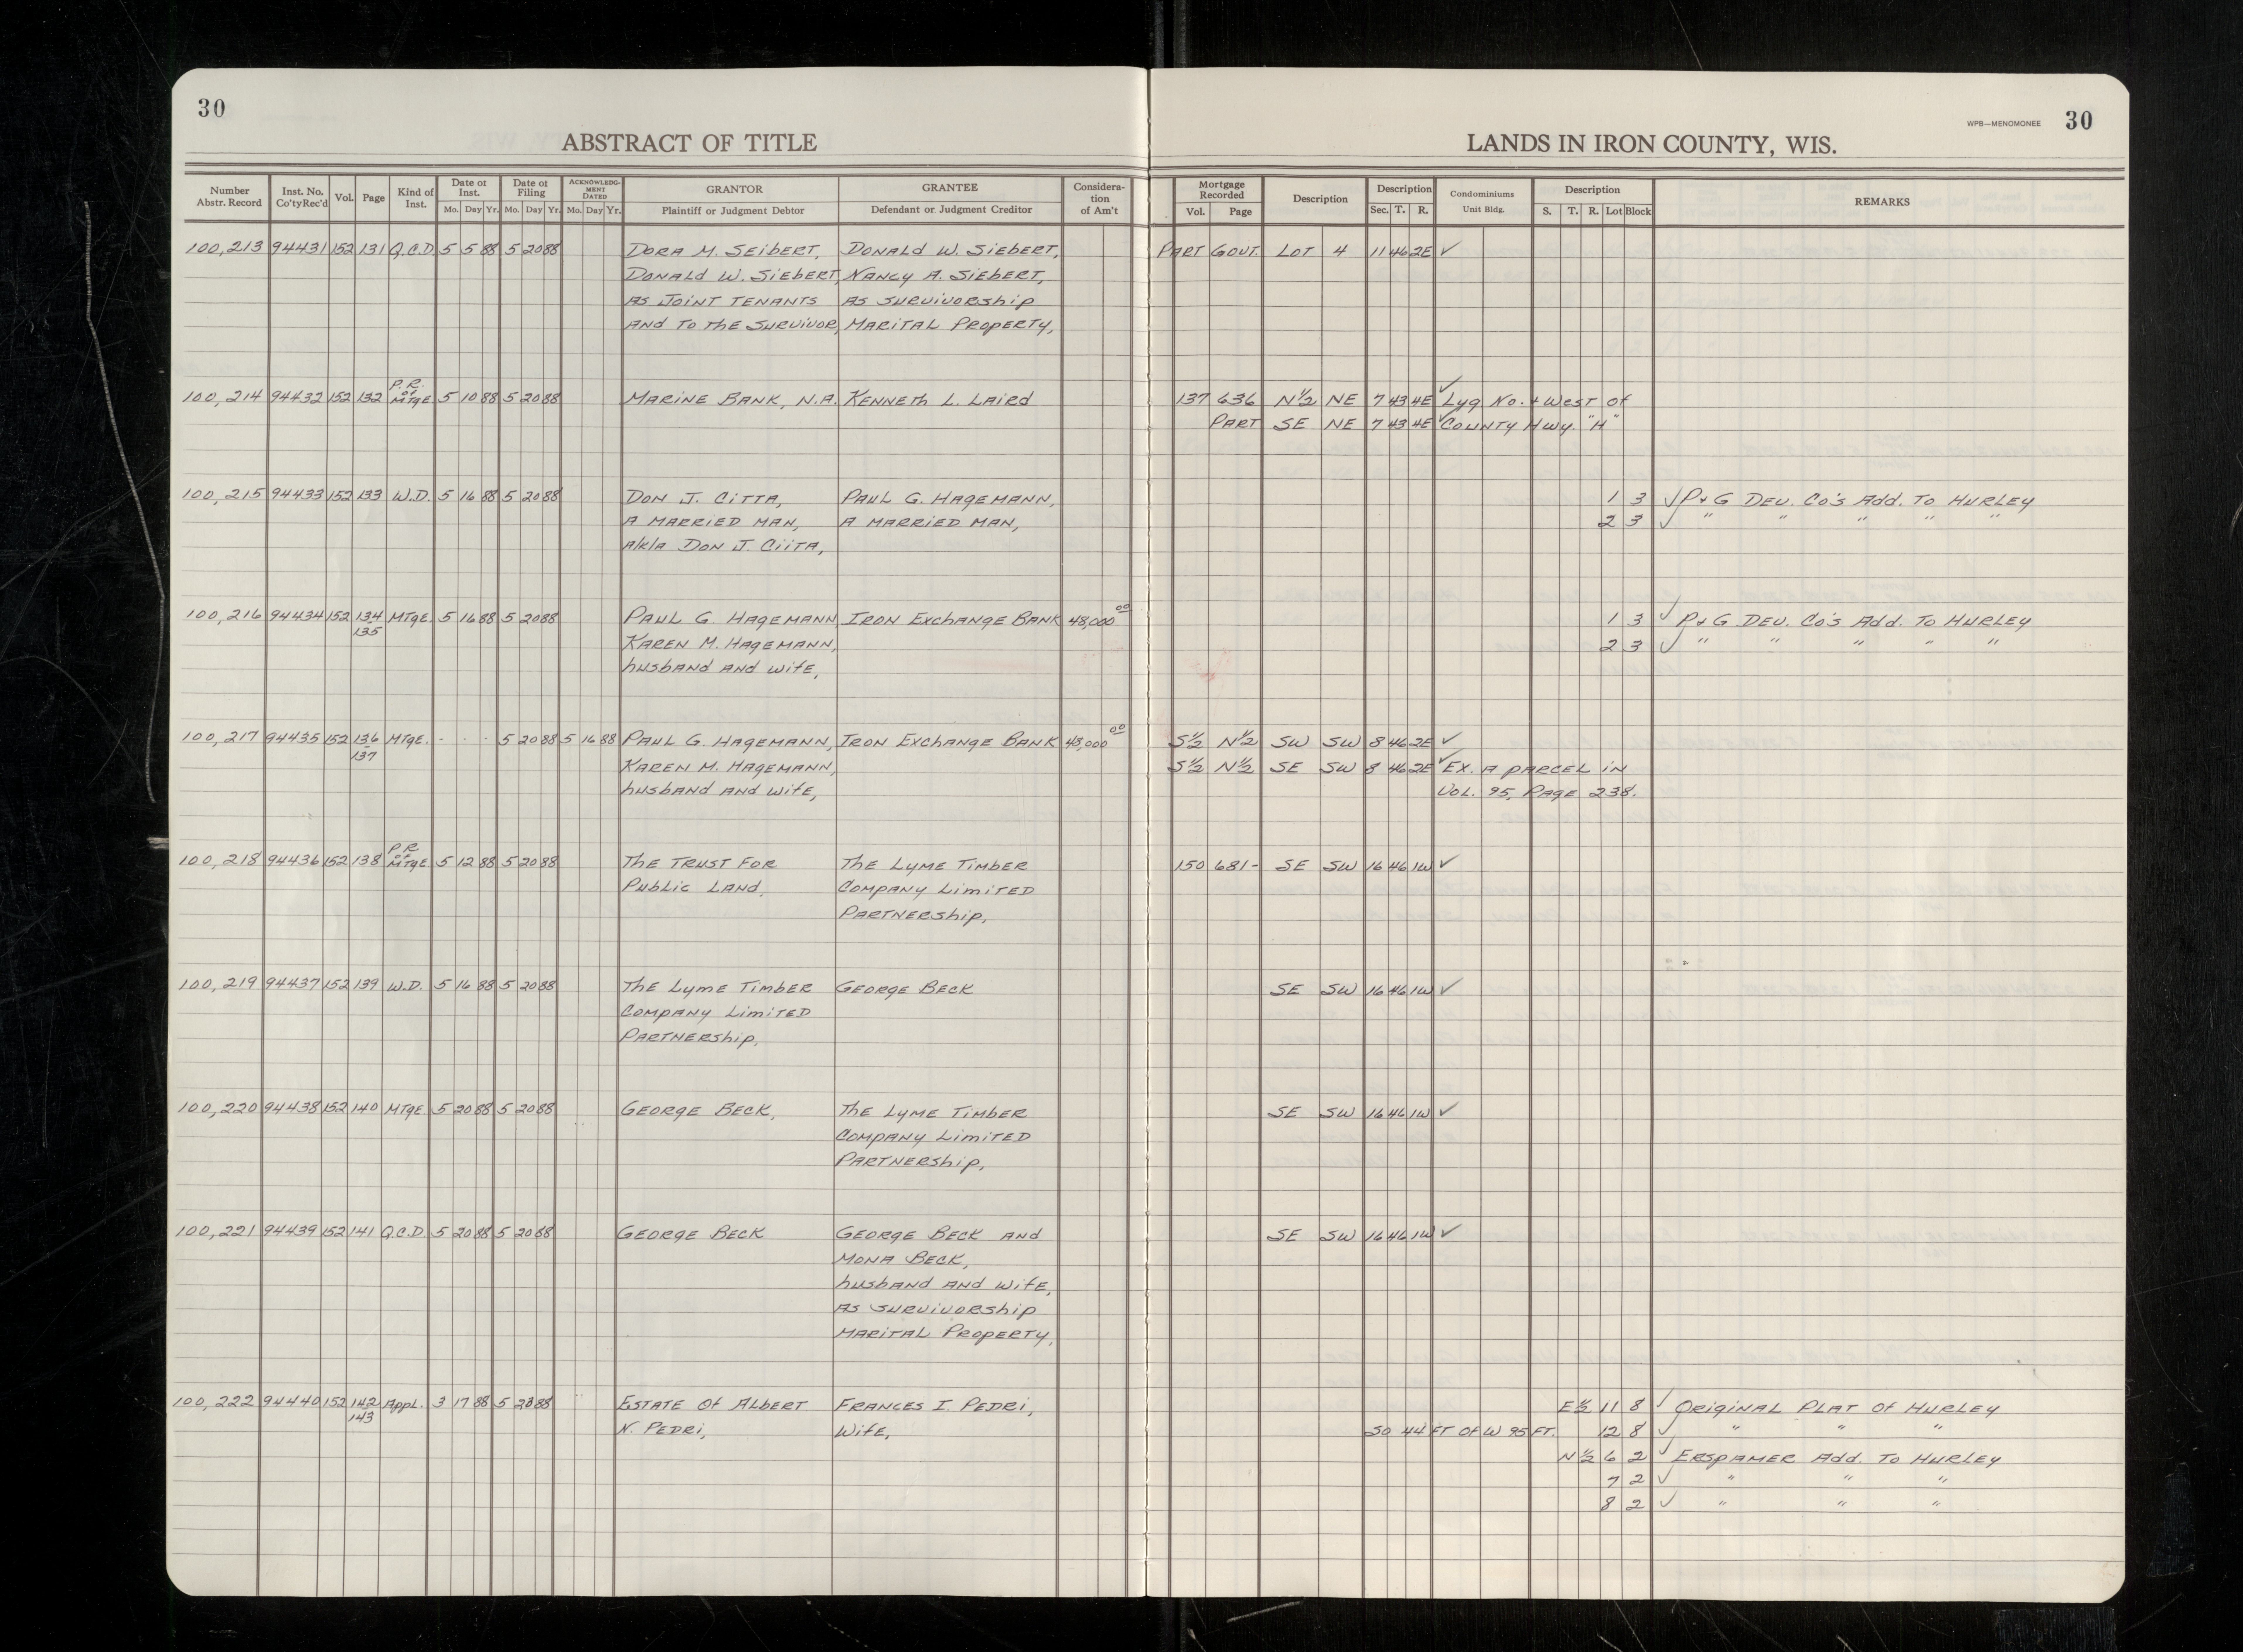 30
ABSTRACT OF TITLE
LANDS IN IRON COUNTY, WIS.
WPB—MENOMONEE 30
Number Abstr. Record | Inst. No. Co'ty Rec'd | Vol. | Page | Kind of Inst. | Date of Inst. Mo. Day Yr. | Date of Filing Mo. Day Yr. | ACKNOWLEDG-MENT DATED Mo. Day Yr. | GRANTOR Plaintiff or Judgment Debtor | GRANTEE Defendant or Judgment Creditor | Considera-tion of Am't | Mortgage Recorded Vol. Page | Description | Description Sec. T. R. | Condominiums Unit Bldg. | Description S. T. R. Lot Block | REMARKS
100,213 94431 152 131 Q.C.D. 5 5 88 5 20 88 DORA M. SEIBERT, DONALD W. SIEBERT, PART GOVT. LOT 4 11 46 2E ✓
DONALD W. SIEBERT, NANCY A. SIEBERT,
AS JOINT TENANTS AS SURVIVORSHIP
AND TO THE SURVIVOR, MARITAL PROPERTY,
P.R. of
100,214 94432 152 132 MTGE 5 10 88 5 20 88 MARINE BANK, N.A. KENNETH L. LAIRD 137 636 N½ NE 7 43 4E ✓ Lyg No. + West of
PART SE NE 7 43 4E ✓ COUNTY HWY. "H"
100,215 94433 152 133 W.D. 5 16 88 5 20 88 DON J. CITTA, PAUL G. HAGEMANN, 1 3 ✓ P+G DEV. CO'S ADD. TO HURLEY
A MARRIED MAN, A MARRIED MAN, 2 3 ✓ " " " " "
A/K/A DON J. CIITA,
100,216 94434 152 134 MTGE. 5 16 88 5 20 88 PAUL G. HAGEMANN, IRON EXCHANGE BANK 48,000 00 1 3 ✓ P+G DEV. CO'S ADD. TO HURLEY
135 KAREN M. HAGEMANN, 2 3 ✓ " " " " "
HUSBAND AND WIFE,
100,217 94435 152 136 MTGE. - - - 5 20 88 5 16 88 PAUL G. HAGEMANN, IRON EXCHANGE BANK 48,000 00 S½ N½ SW SW 8 46 2E ✓
137 KAREN M. HAGEMANN, S½ N½ SE SW 8 46 2E ✓ EX. A PARCEL IN
HUSBAND AND WIFE, VOL. 95, PAGE 238.
P.R. of
100,218 94436 152 138 MTGE 5 12 88 5 20 88 THE TRUST FOR THE LYME TIMBER 150 681- SE SW 16 46 1W ✓
PUBLIC LAND, COMPANY LIMITED
PARTNERSHIP,
100,219 94437 152 139 W.D. 5 16 88 5 20 88 THE LYME TIMBER GEORGE BECK SE SW 16 46 1W ✓
COMPANY LIMITED
PARTNERSHIP,
100,220 94438 152 140 MTGE. 5 20 88 5 20 88 GEORGE BECK, THE LYME TIMBER SE SW 16 46 1W ✓
COMPANY LIMITED
PARTNERSHIP,
100,221 94439 152 141 Q.C.D. 5 20 88 5 20 88 GEORGE BECK GEORGE BECK AND SE SW 16 46 1W ✓
MONA BECK,
HUSBAND AND WIFE,
AS SURVIVORSHIP
MARITAL PROPERTY,
100,222 94440 152 142 APPL. 3 17 88 5 88 ESTATE OF ALBERT FRANCES I. PEDRI, E½ 11 8 ✓ ORIGINAL PLAT OF HURLEY
143 N. PEDRI, WIFE, SO 44 FT OF W 95 FT. 12 8 ✓ " " "
N½ 6 2 ✓ ERSPAMER ADD. TO HURLEY
7 2 ✓ " " "
8 2 ✓ " " "